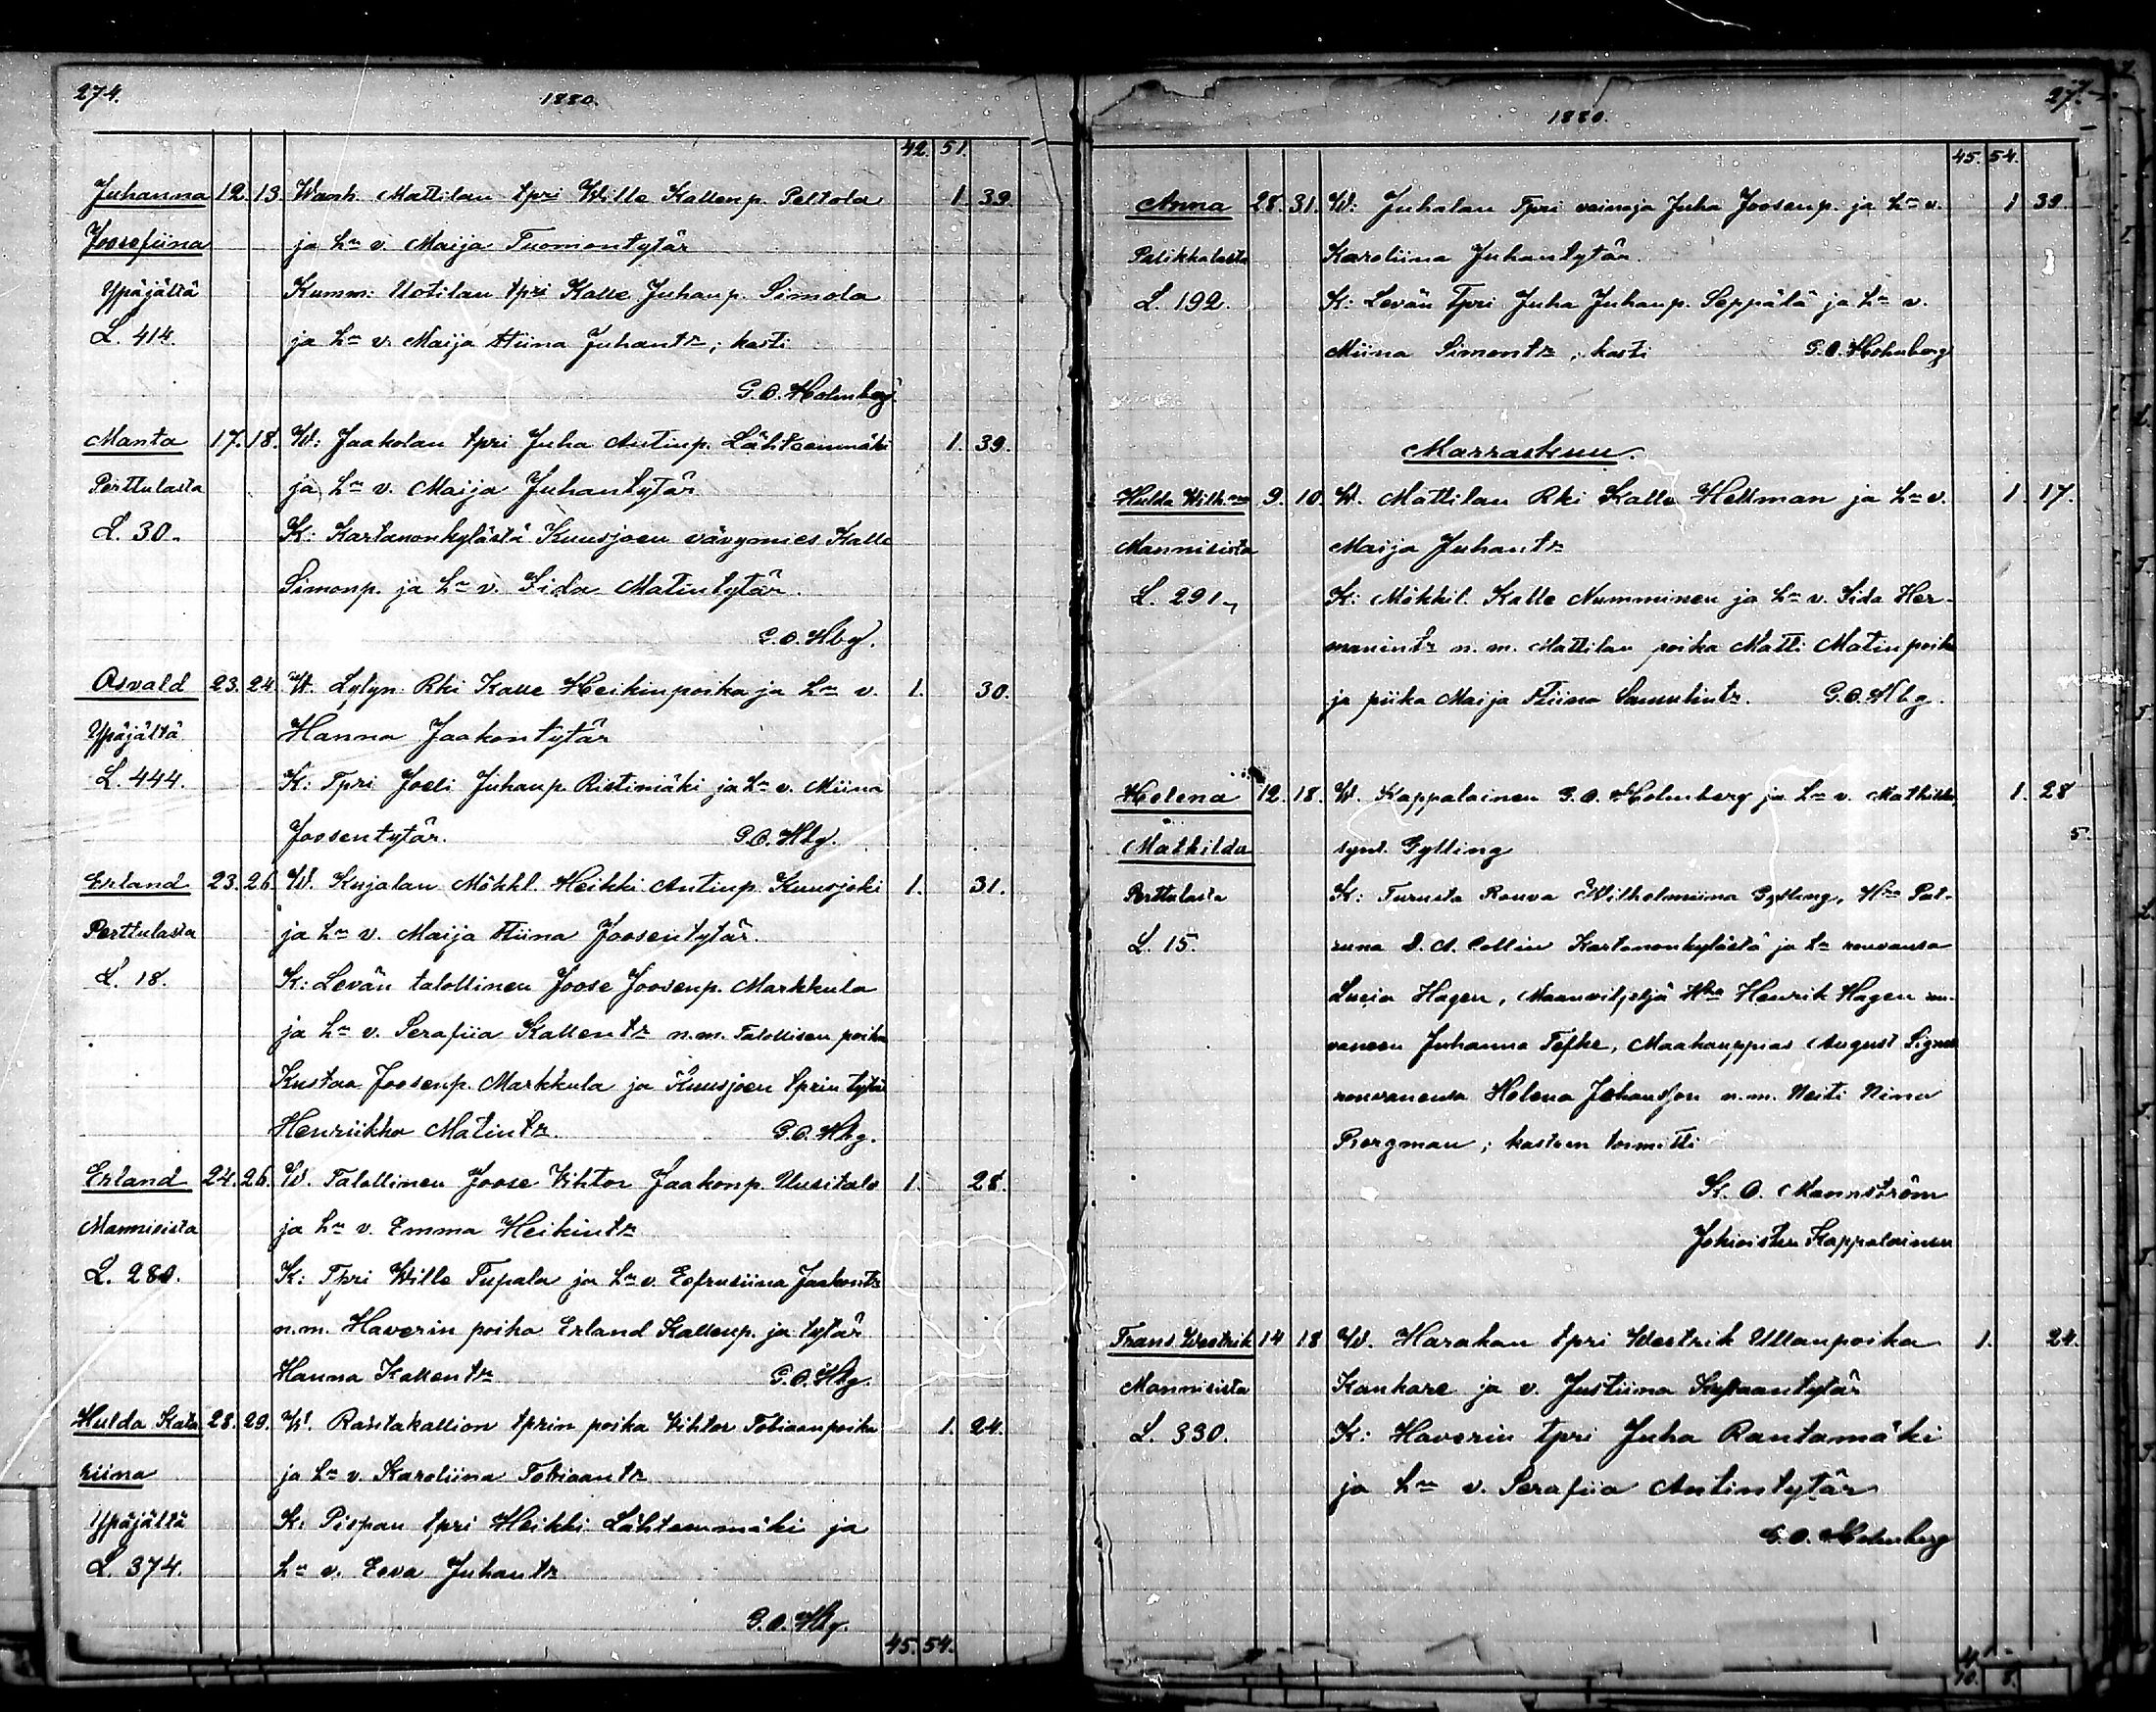 274.
1880.
42. 51.
Juhanna 12. 13. Wanh. Mattilan tpri Wille Kallenp. Peltola 1 39
Joosefiina ja hn v. Maija Tuomontytär
Ypäjältä Kumm: Uotilan tpri Kalle Juhanp. Simola
L. 414. ja hn v. Maija Stiina Juhantr; kasti
G.O. Holmberg
Manta 17. 18. W: Jaakolan tpri Juha Antinp. Lähteenmäki 1. 39.
Perttulasta ja hn v. Maija Juhantytär
L. 30. K: Kartanonkylästä Kuusjoen vävymies Kalle
Simonp. ja hn v. Iida Matintytär.
G.O. Hbg.
Osvald 23. 24. W. Lylyn Rki Kalle Heikinpoika ja hn v. 1. 30.
Ypäjältä Hanna Jaakontytär
L. 444. K: Tpri Joeli Juhanp. Ristimäki ja hn v. Miina
Joosentytär. G.O. Hbg.
Erland 23. 26. W. Kujalan Mökkl. Heikki Antinp. Kuusjoki 1. 31.
Perttulasta ja hn v. Maija Stiina Joosentytär.
L. 18. K: Levän talollinen Joose Joosenp. Markkula
ja hn v. Serafiia Kallentr n.m. Talollisen poika
Kustaa Joosenp. Markkula ja Kuusjoen tprin tytär
Henriikka Matintr. G.O. Hbg.
Erland 24. 26. W. Talollinen Joose Vihtor Jaakonp. Uusitalo 1. 28.
Mannisista ja hn v. Emma Heikintr
L. 280. K: Tpri Wille Tupala ja hn v. Eefrusiina Jaakontr
n.m. Haverin poika Erland Kallenp. ja tytär
Hanna Kallentr G.O. Hbg.
Hulda Kata 28. 29. W. Rantakallion tprin poika Vihtor Tobiaanpoika 1. 24.
riina ja hn v. Karoliina Tobiaantr
Ypäjältä K: Pispan tpri Heikki Lähteenmäki ja
L. 374. hn v. Eeva Juhantr
G.O. Hbg.
45. 54.
27
1880.
45. 54.
Anna 28. 31. W: Juhalan Tpri vainaja Juha Joosenp. ja hn v. 1 39.
Palikkalasta Karoliina Juhantytär.
L. 192. K: Levän Tpri Juha Juhanp. Seppälä ja hn v.
Miina Simontr; kasti G.O. Holmberg
Marraskuu.
Hulda Wilh:na 9. 10. W. Mattilan Rki Kalle Hellman ja hn v. 1. 17.
Mannisista Maija Juhantr
L. 291 K: Mökkil. Kalle Numminen ja hn v. Iida Her-
manintr n.m. Mattilan poika Matti Matinpoika
ja piika Maija Stiina Samulintr. G.O. Hbg.
Helena 12. 18. W. Kappalainen G.O. Holmberg ja hn v. Mathilda 1. 28
Mathilda synt. Gylling 5.
Perttulasta K: Turusta Rouva Wilhelmiina Gylling, Hra Pat-
L. 15. runa D. A. Collin Kartanonkylästä ja hn rouvansa
Lucia Hagen, Maanviljeljä Hra Henrik Hagen rou-
vaneen Juhanna Tefke, Maakauppias August
rouvanensa Helena Johansson n.m. Neiti Nina
Bergman; kasteen toimitti
K. O. Mannström
Jokioisten Kappalainen
Frans Westrik 14 18 W. Harakan tpri Westrik Ullanpoika 1. 24.
Mannisista Kankare ja v. Justiina Kustaantytär
L. 330. K: Haverin tpri Juha Rantamäki
ja hn v. Serafiia Antintytär
G.O. Holmberg
10. 8.